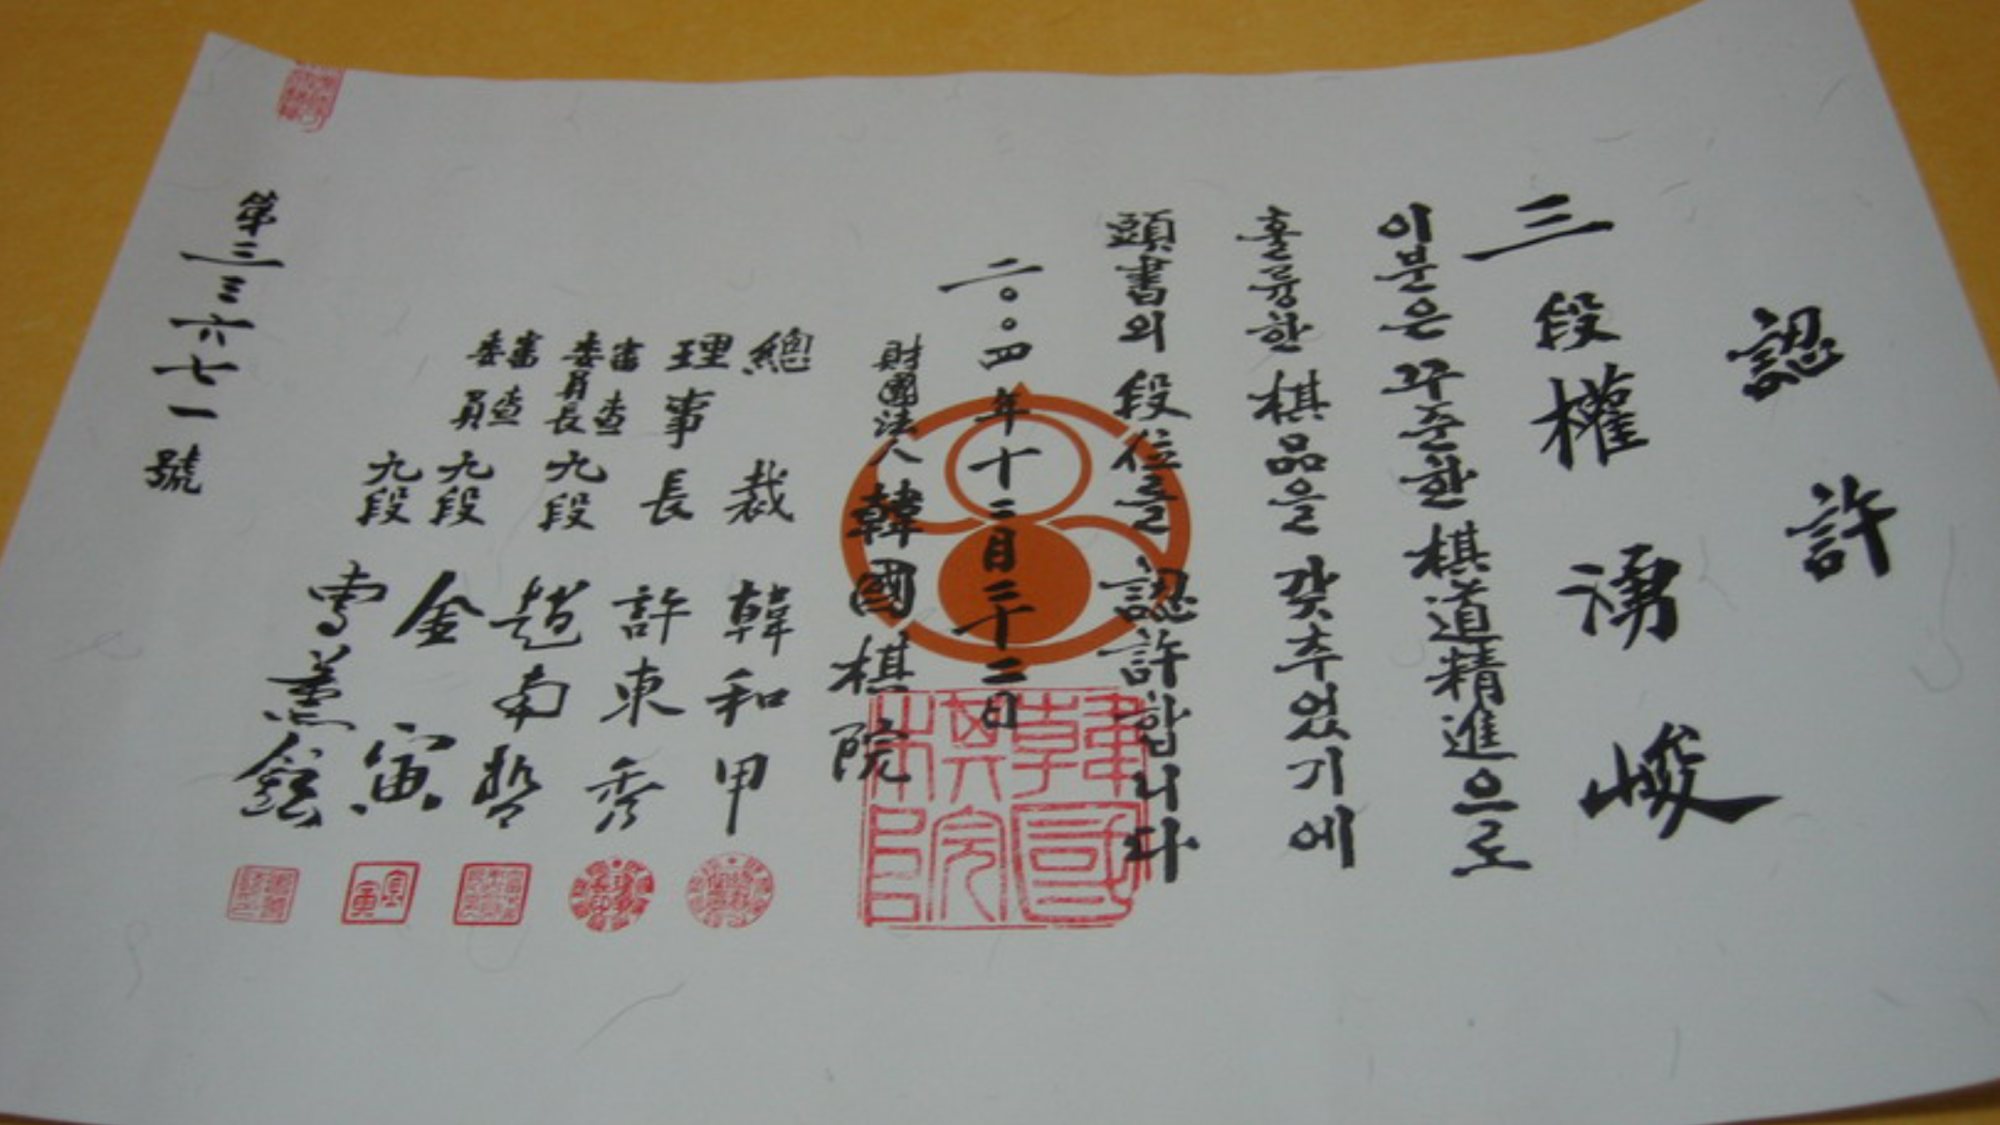 認許
三段 權湧峻
이분은 꾸준한 棋道精進으로
훌륭한 棋品을 갖추었기에
頭書의 段位를 認許합니다
二〇〇四年十二月二十二日
財團法人 韓國棋院
總裁 韓和甲
理事長 許東秀
審査委員長 九段 趙南哲
審査委員 九段 金寅
九段 曺薰鉉
第三三六七一號
韓國棋院